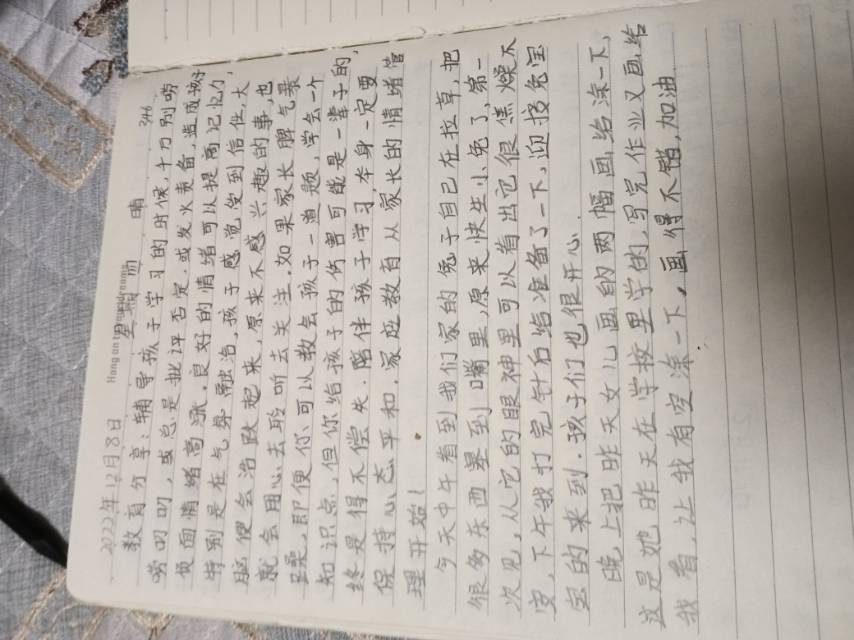 2022年12月8日
Hang on to your dreams
星期四 晴 346
教育分享:辅导孩子学习的时候,千万别唠
唠叨叨,或总是批评否定.或发火责备,造成孩子
负面情绪高涨.良好的情绪可以提高记忆力,
特别是在气氛融洽,孩子感觉受到信任,大
脑便会活跃起来,原来不感兴趣的事,也
就会用心去聆听去关注.如果家长脾气暴
躁,即便你可以教会孩子一道题,学会一个
知识点,但你给孩子的伤害可能是一辈子的,
终是得不偿失.陪伴孩子学习,本身一定要
保持心态平和.家庭教育从家长的情绪管
理开始!
今天中午看到我们家的兔子自己在拉草,把
很多东西塞到嘴里,原来快生小兔了,第一
次见,从它的眼神里可以看出它很焦燥不
安,下午我打完针后给准备了一下,迎接兔宝
宝的来到.孩子们也很开心.
晚上把昨天女儿画的两幅画给涂一下,
这是她昨天在学校里学的,写完作业又画给
我看,让我有空涂一下,画得不错,加油.